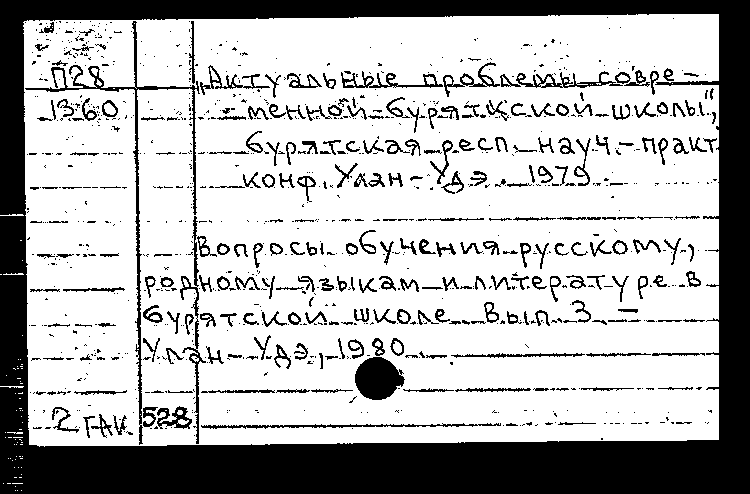 П28 „Актуальные проблемы совре-
1360 менной бурятской школы",
бурятская респ. науч.-практ
конф. Улан-Удэ. 1979.
Вопросы обучения русскому,
родному языкам и литературе в
бурятской школе. Вып. 3. —
Улан-Удэ, 1980.
2 ГАК 528